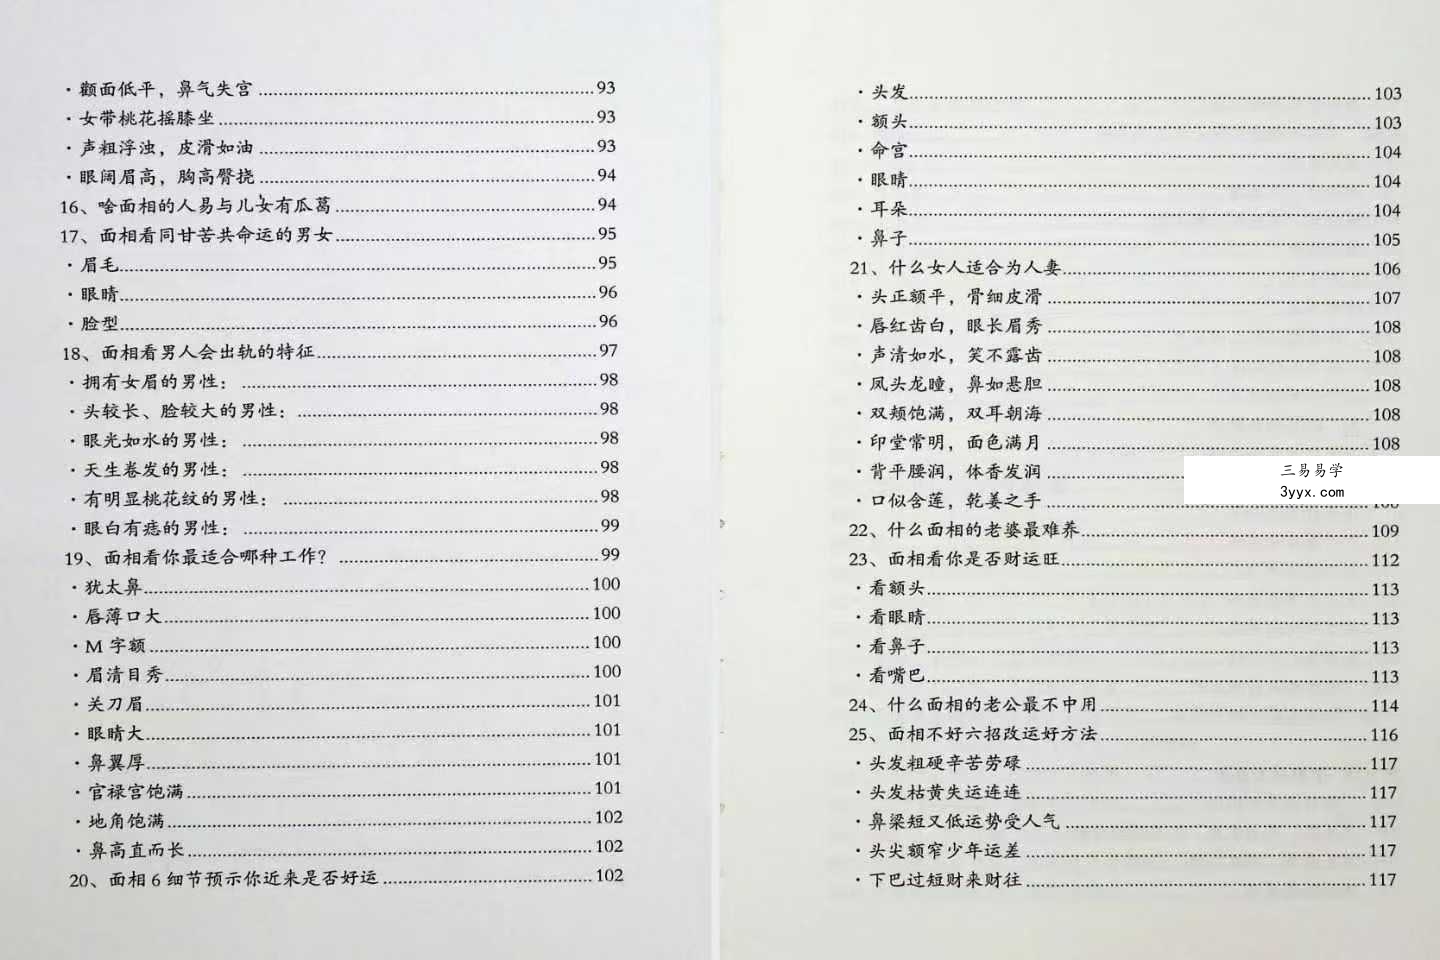 · 颧面低平，鼻气失宫 93
· 女带桃花摇膝坐 93
· 声粗浮浊，皮滑如油 93
· 眼阔眉高，胸高臀挠 94
16、啥面相的人易与儿女有瓜葛 94
17、面相看同甘苦共命运的男女 95
· 眉毛 95
· 眼睛 96
· 脸型 96
18、面相看男人会出轨的特征 97
· 拥有女眉的男性： 98
· 头较长、脸较大的男性： 98
· 眼光如水的男性： 98
· 天生卷发的男性： 98
· 有明显桃花纹的男性： 98
· 眼白有痣的男性： 99
19、面相看你最适合哪种工作？ 99
· 犹太鼻 100
· 唇薄口大 100
· M 字额 100
· 眉清目秀 100
· 关刀眉 101
· 眼睛大 101
· 鼻翼厚 101
· 官禄宫饱满 101
· 地角饱满 102
· 鼻高直而长 102
20、面相 6 细节预示你近来是否好运 102
· 头发 103
· 额头 103
· 命宫 104
· 眼睛 104
· 耳朵 104
· 鼻子 105
21、什么女人适合为人妻 106
· 头正额平，骨细皮滑 107
· 唇红齿白，眼长眉秀 108
· 声清如水，笑不露齿 108
· 凤头龙瞳，鼻如悬胆 108
· 双颊饱满，双耳朝海 108
· 印堂常明，面色满月 108
· 背平腰润，体香发润
· 口似含莲，乾姜之手
三易易学
3yyx.com
22、什么面相的老婆最难养 109
23、面相看你是否财运旺 112
· 看额头 113
· 看眼睛 113
· 看鼻子 113
· 看嘴巴 113
24、什么面相的老公最不中用 114
25、面相不好六招改运好方法 116
· 头发粗硬辛苦劳碌 117
· 头发枯黄失运连连 117
· 鼻梁短又低运势受人气 117
· 头尖额窄少年运差 117
· 下巴过短财来财往 117